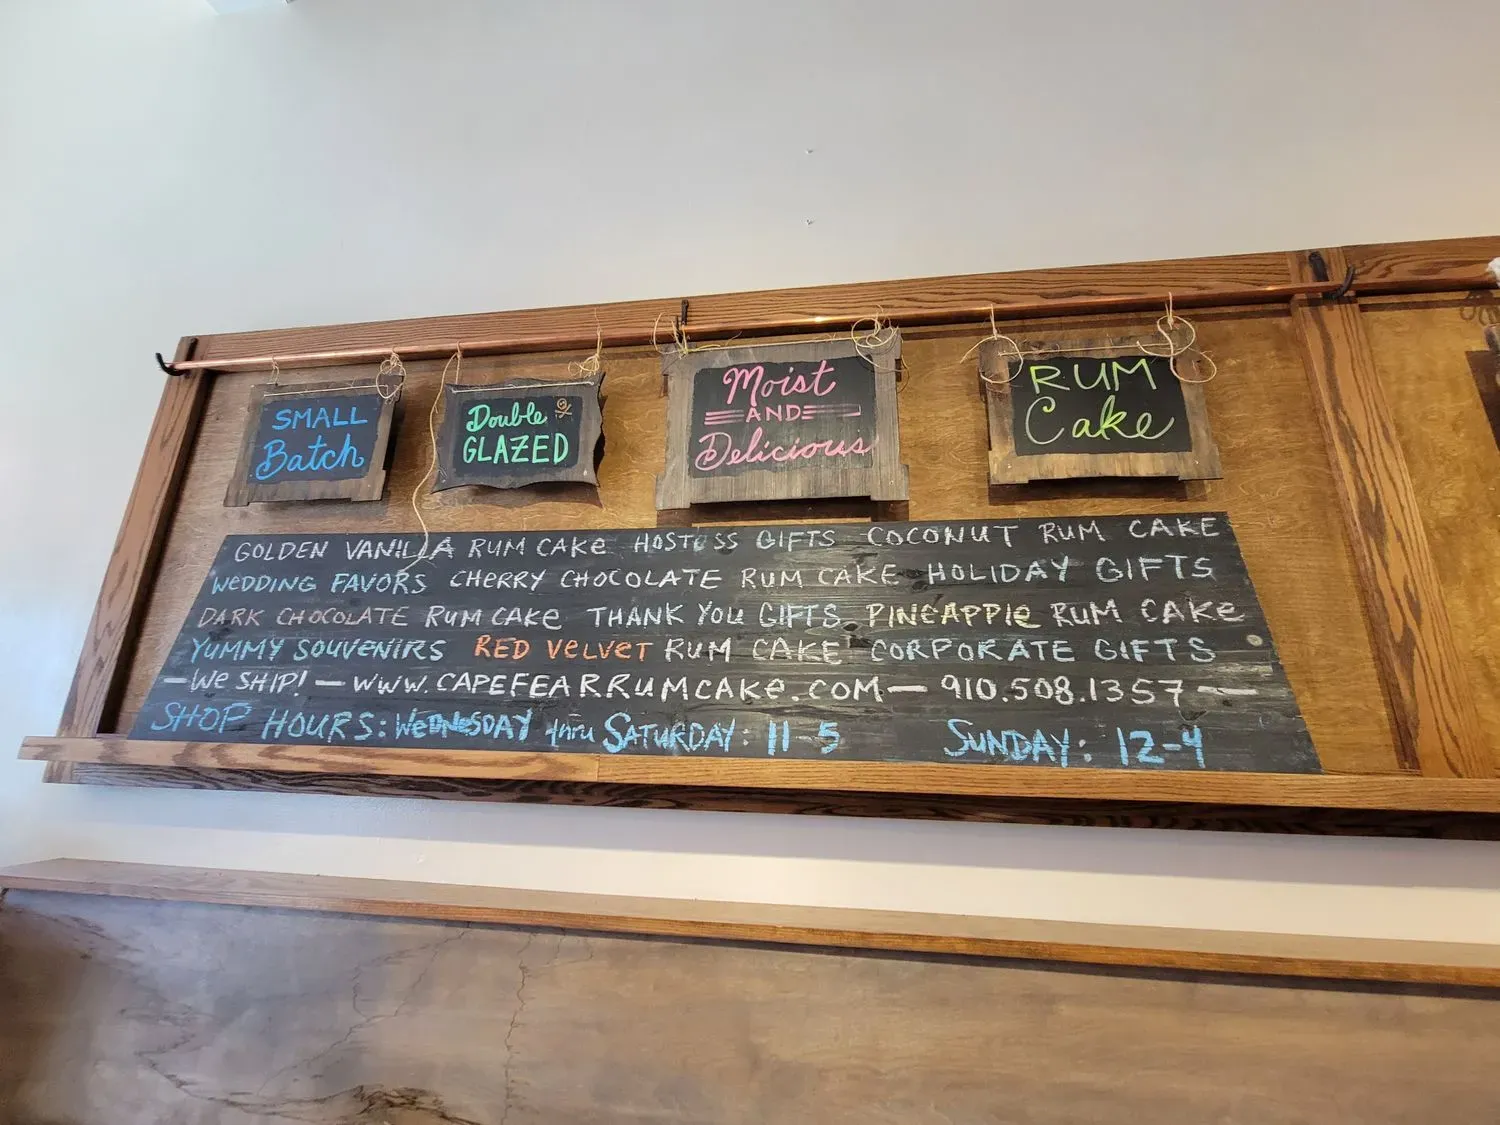 SMALL
Batch
Double
GLAZED
Moist
AND
Delicious
RUM
Cake
GOLDEN VANILLA RUM CAKE HOSTESS GIFTS COCONUT RUM CAKE
WEDDING FAVORS CHERRY CHOCOLATE RUM CAKE HOLIDAY GIFTS
DARK CHOCOLATE RUM CAKE THANK YOU GIFTS PINEAPPLE RUM CAKE
YUMMY SOUVENIRS RED VELVET RUM CAKE CORPORATE GIFTS
— WE SHIP! — WWW.CAPEFEARRUMCAKE.COM — 910.508.1357 —
SHOP HOURS: WEDNESDAY thru SATURDAY: 11-5 SUNDAY: 12-4